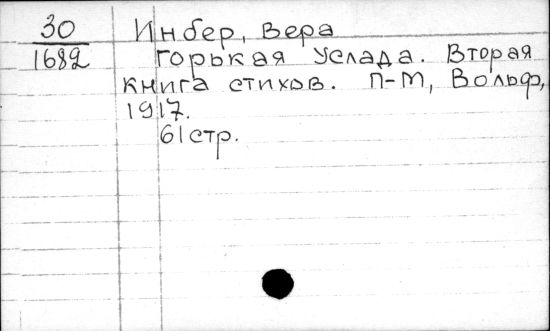 30
1682
Инбер, Вера
Горькая услада. Вторая
книга стихов. П-М, Вольф,
1917.
61 стр.